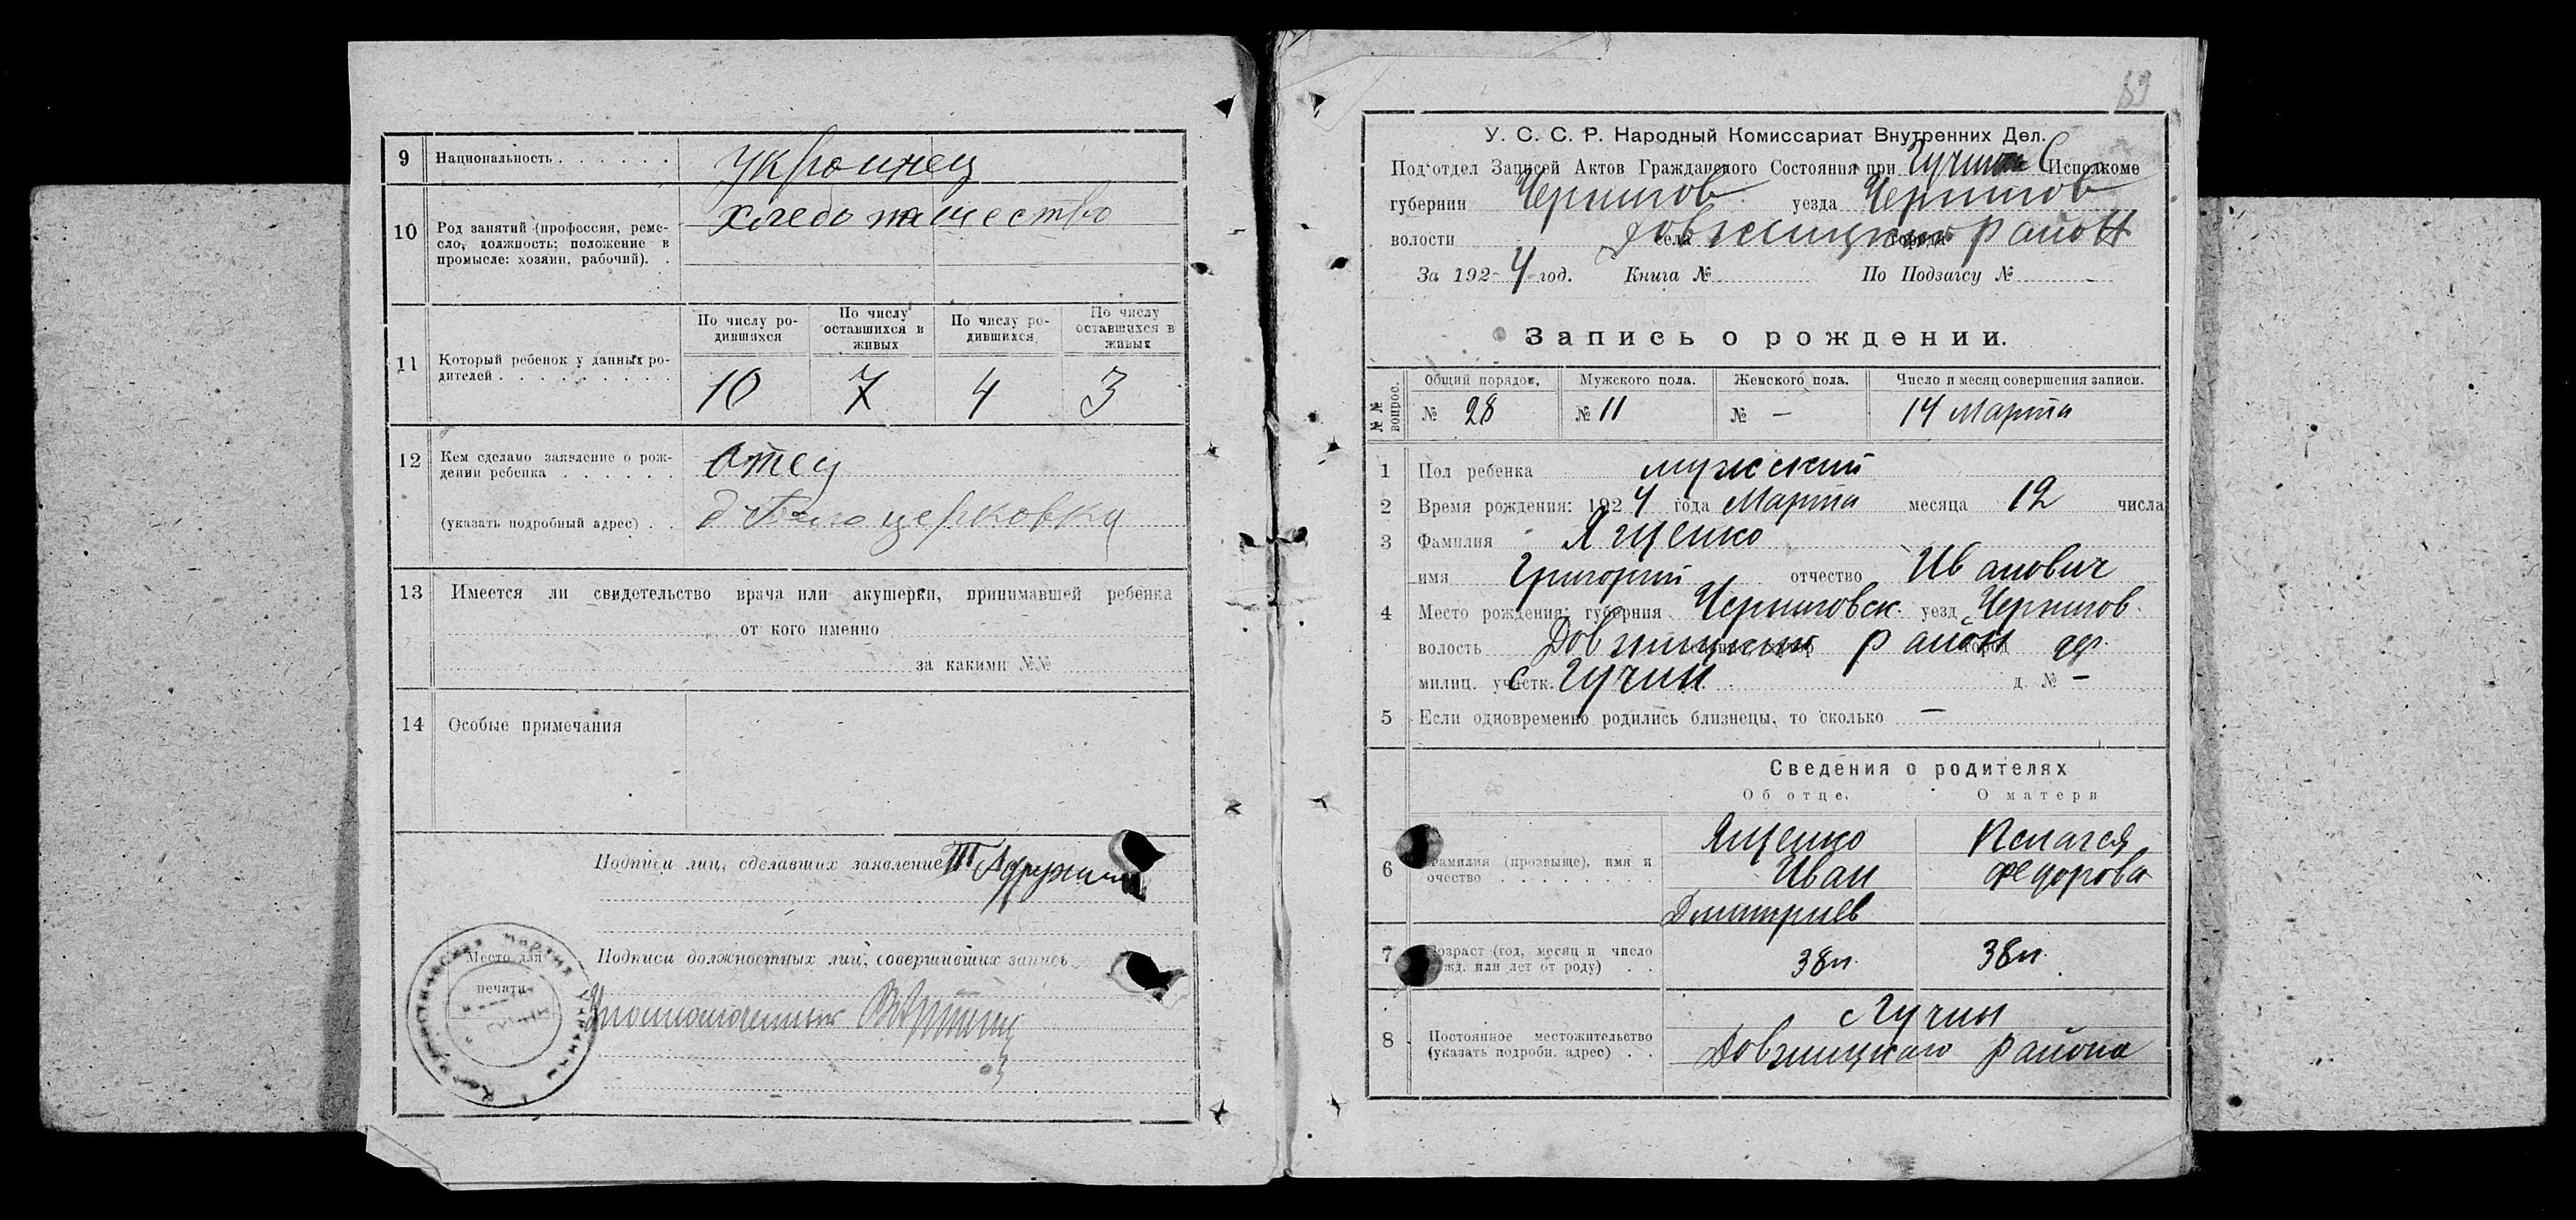 9 Национальность . . . . . . Украинец
10 Род занятий (профессия, реме-
сло, должность; положение в
промысле: хозяин, рабочий). .
Хлебопашество
11 Который ребенок у данных ро-
дителей . . . . . . . . .
По числу ро-
дившихся
По числу
оставшихся в
живых
По числу ро-
дившихся
По числу
оставшихся в
живых
10 7 4 3
12 Кем сделано заявление о рож-
дении ребенка . . . . . .
Отец
(указать подробный адрес) . .
13 Имеется ли свидетельство врача или акушерки, принимавшей ребенка
от кого именно
за какими №№
14 Особые примечания
Подписи лиц, сделавших заявление
Место для
печати
Подписи должностных лиц, совершивших запись
Уполномоченный
У. С. С. Р. Народный Комиссариат Внутренних Дел.
Под'отдел Записей Актов Гражданского Состояния при Гучин С Исполкоме
губернии Чернигов уезда Чернигов
волости села города район
За 1924 год. Книга № По Подзагсу №
Запись о рождении.
№№ вопрос.
Общий порядок. Мужского пола. Женского пола. Число и месяц совершения записи.
№ 28 № 11 № — 14 Марта
1 Пол ребенка мужский
2 Время рождения: 1924 года Марта месяца 12 числа
3 Фамилия Ященко
имя Григорий отчество Иванович
4 Место рождения: губерния Черниговск уезд Чернигов
волость район город
милиц. участк. с Гучин д. № —
5 Если одновременно родились близнецы, то сколько —
Сведения о родителях
Об отце. О матери
6 Фамилия (прозвыще), имя и
очество . . . . . . . .
Ященко
Иван
Дмитриев
Пелагея
Федорова
7 Возраст (год, месяц и число
рожд. или лет от роду) . .
38л. 38л.
8 Постоянное местожительство
(указать подробн. адрес) . .
с Гучин
района